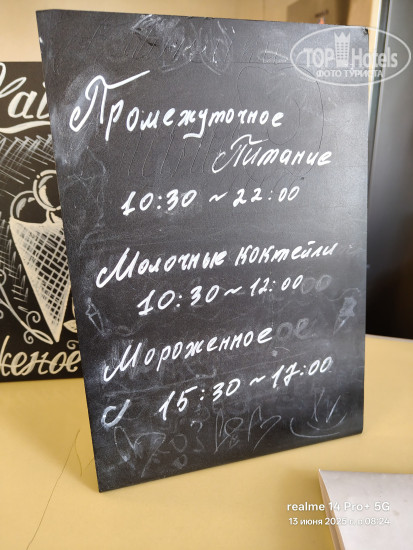 Промежуточное
Питание
10:30 ~ 22:00
Молочные коктейли
10:30 ~ 12:00
Мороженное
15:30 ~ 17:00
TOP Hotels
ФОТО ТУРИСТА
realme 14 Pro+ 5G
13 июня 2025 г. в 08:24